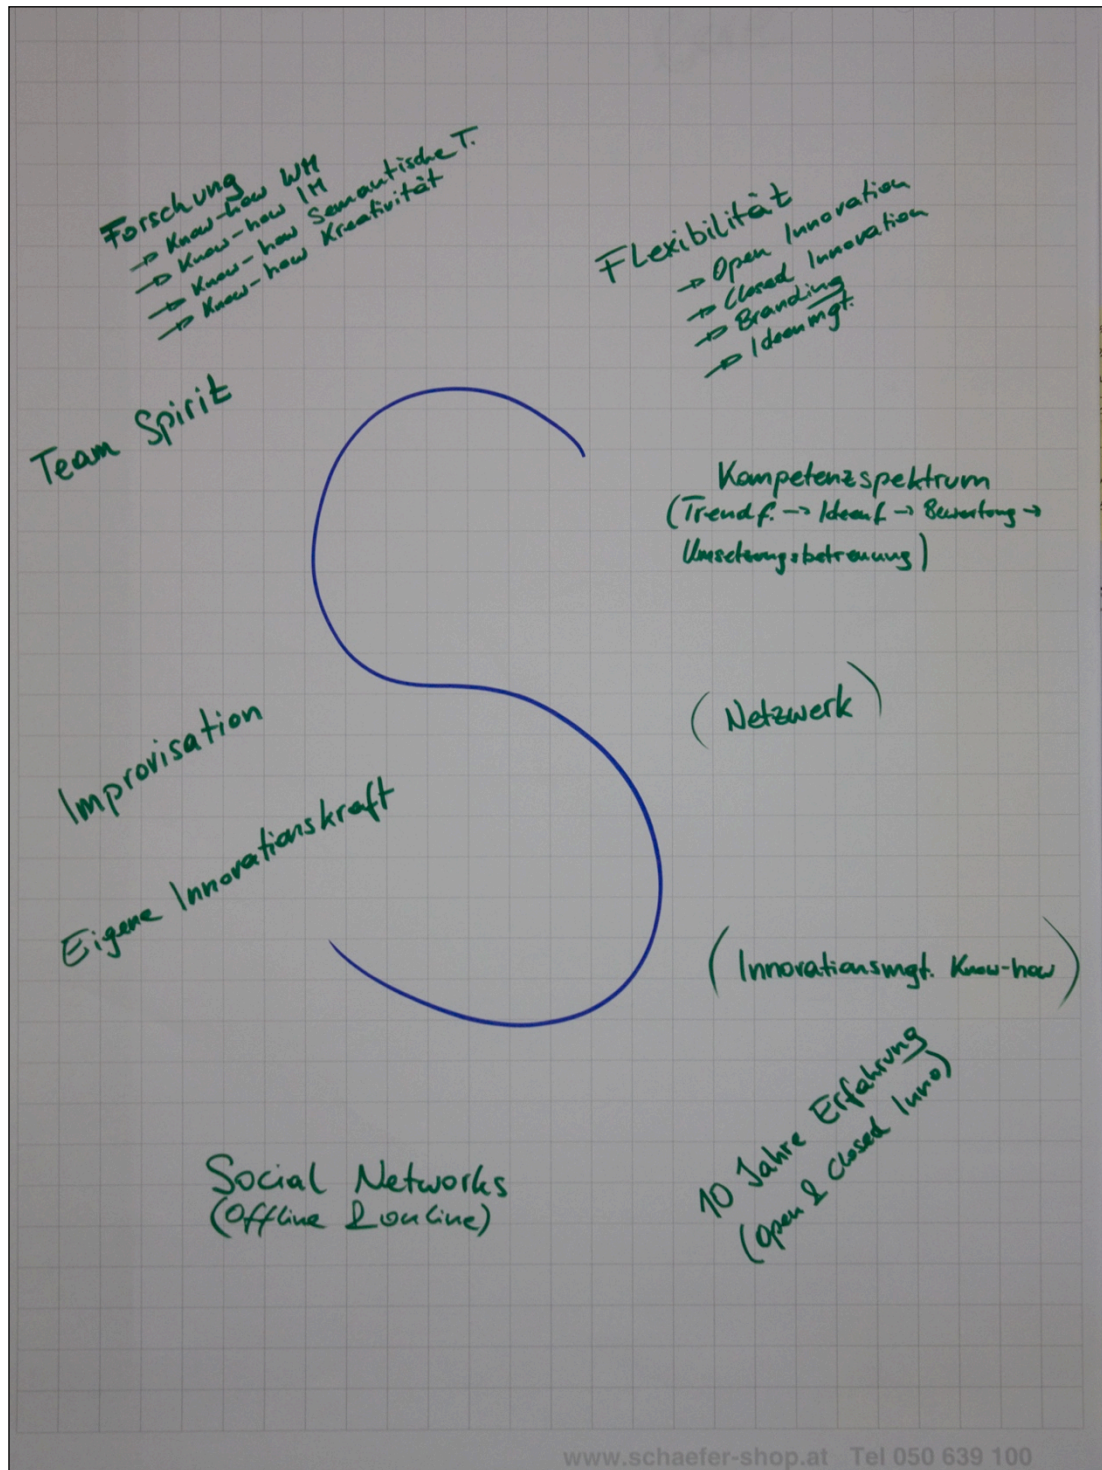 Forschung
→ Know-how WM
→ Know-how IM
→ Know-how Semantische T.
→ Know-how Kreativität
Flexibilität
→ Open Innovation
→ Closed Innovation
→ Branding
→ Ideenmgt.
Team Spirit
S
Kompetenzspektrum
(Trendf. → Ideenf → Bewertung →
Umsetzungsbetreuung)
(Netzwerk)
Improvisation
Eigene Innovationskraft
(Innovationsmgt. Know-how)
10 Jahre Erfahrung
(Open & Closed Inno)
Social Networks
(Offline & online)
www.schaefer-shop.at Tel 050 639 100